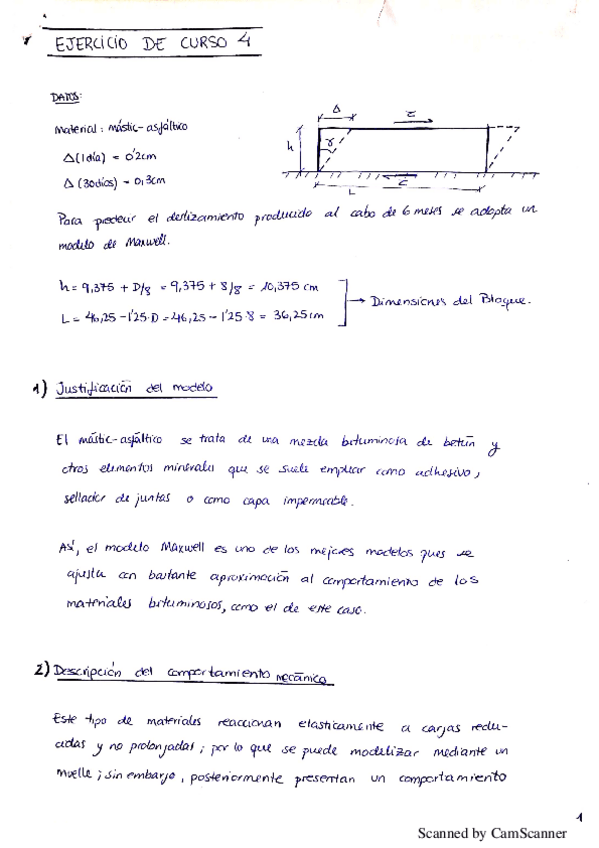 EJERCICIO DE CURSO 4
DATOS:
Material: mástic-asfáltico
Δ(1 día) = 0'2cm
Δ(30días) = 0,3cm
Δ
τ
h
γ
τ
L
Para predecir el deslizamiento producido al cabo de 6 meses se adopta un
modelo de Maxwell.
h = 9,375 + D/8 = 9,375 + 8/8 = 10,375 cm
L = 46,25 - 1'25·D = 46,25 - 1'25·8 = 36,25cm
Dimensiones del Bloque.
1) Justificación del modelo
El mástic-asfáltico se trata de una mezcla bituminosa de betún y
otros elementos minerales que se suele emplear como adhesivo,
sellador de juntas o como capa impermeable.
Así, el modelo Maxwell es uno de los mejores modelos pues se
ajusta con bastante aproximación al comportamiento de los
materiales bituminosos, como el de este caso.
2) Descripción del comportamiento mecánico
Este tipo de materiales reaccionan elasticamente a cargas redu-
cidas y no prolongadas; por lo que se puede modelizar mediante un
muelle; sin embargo, posteriormente presentan un comportamiento
1
Scanned by CamScanner